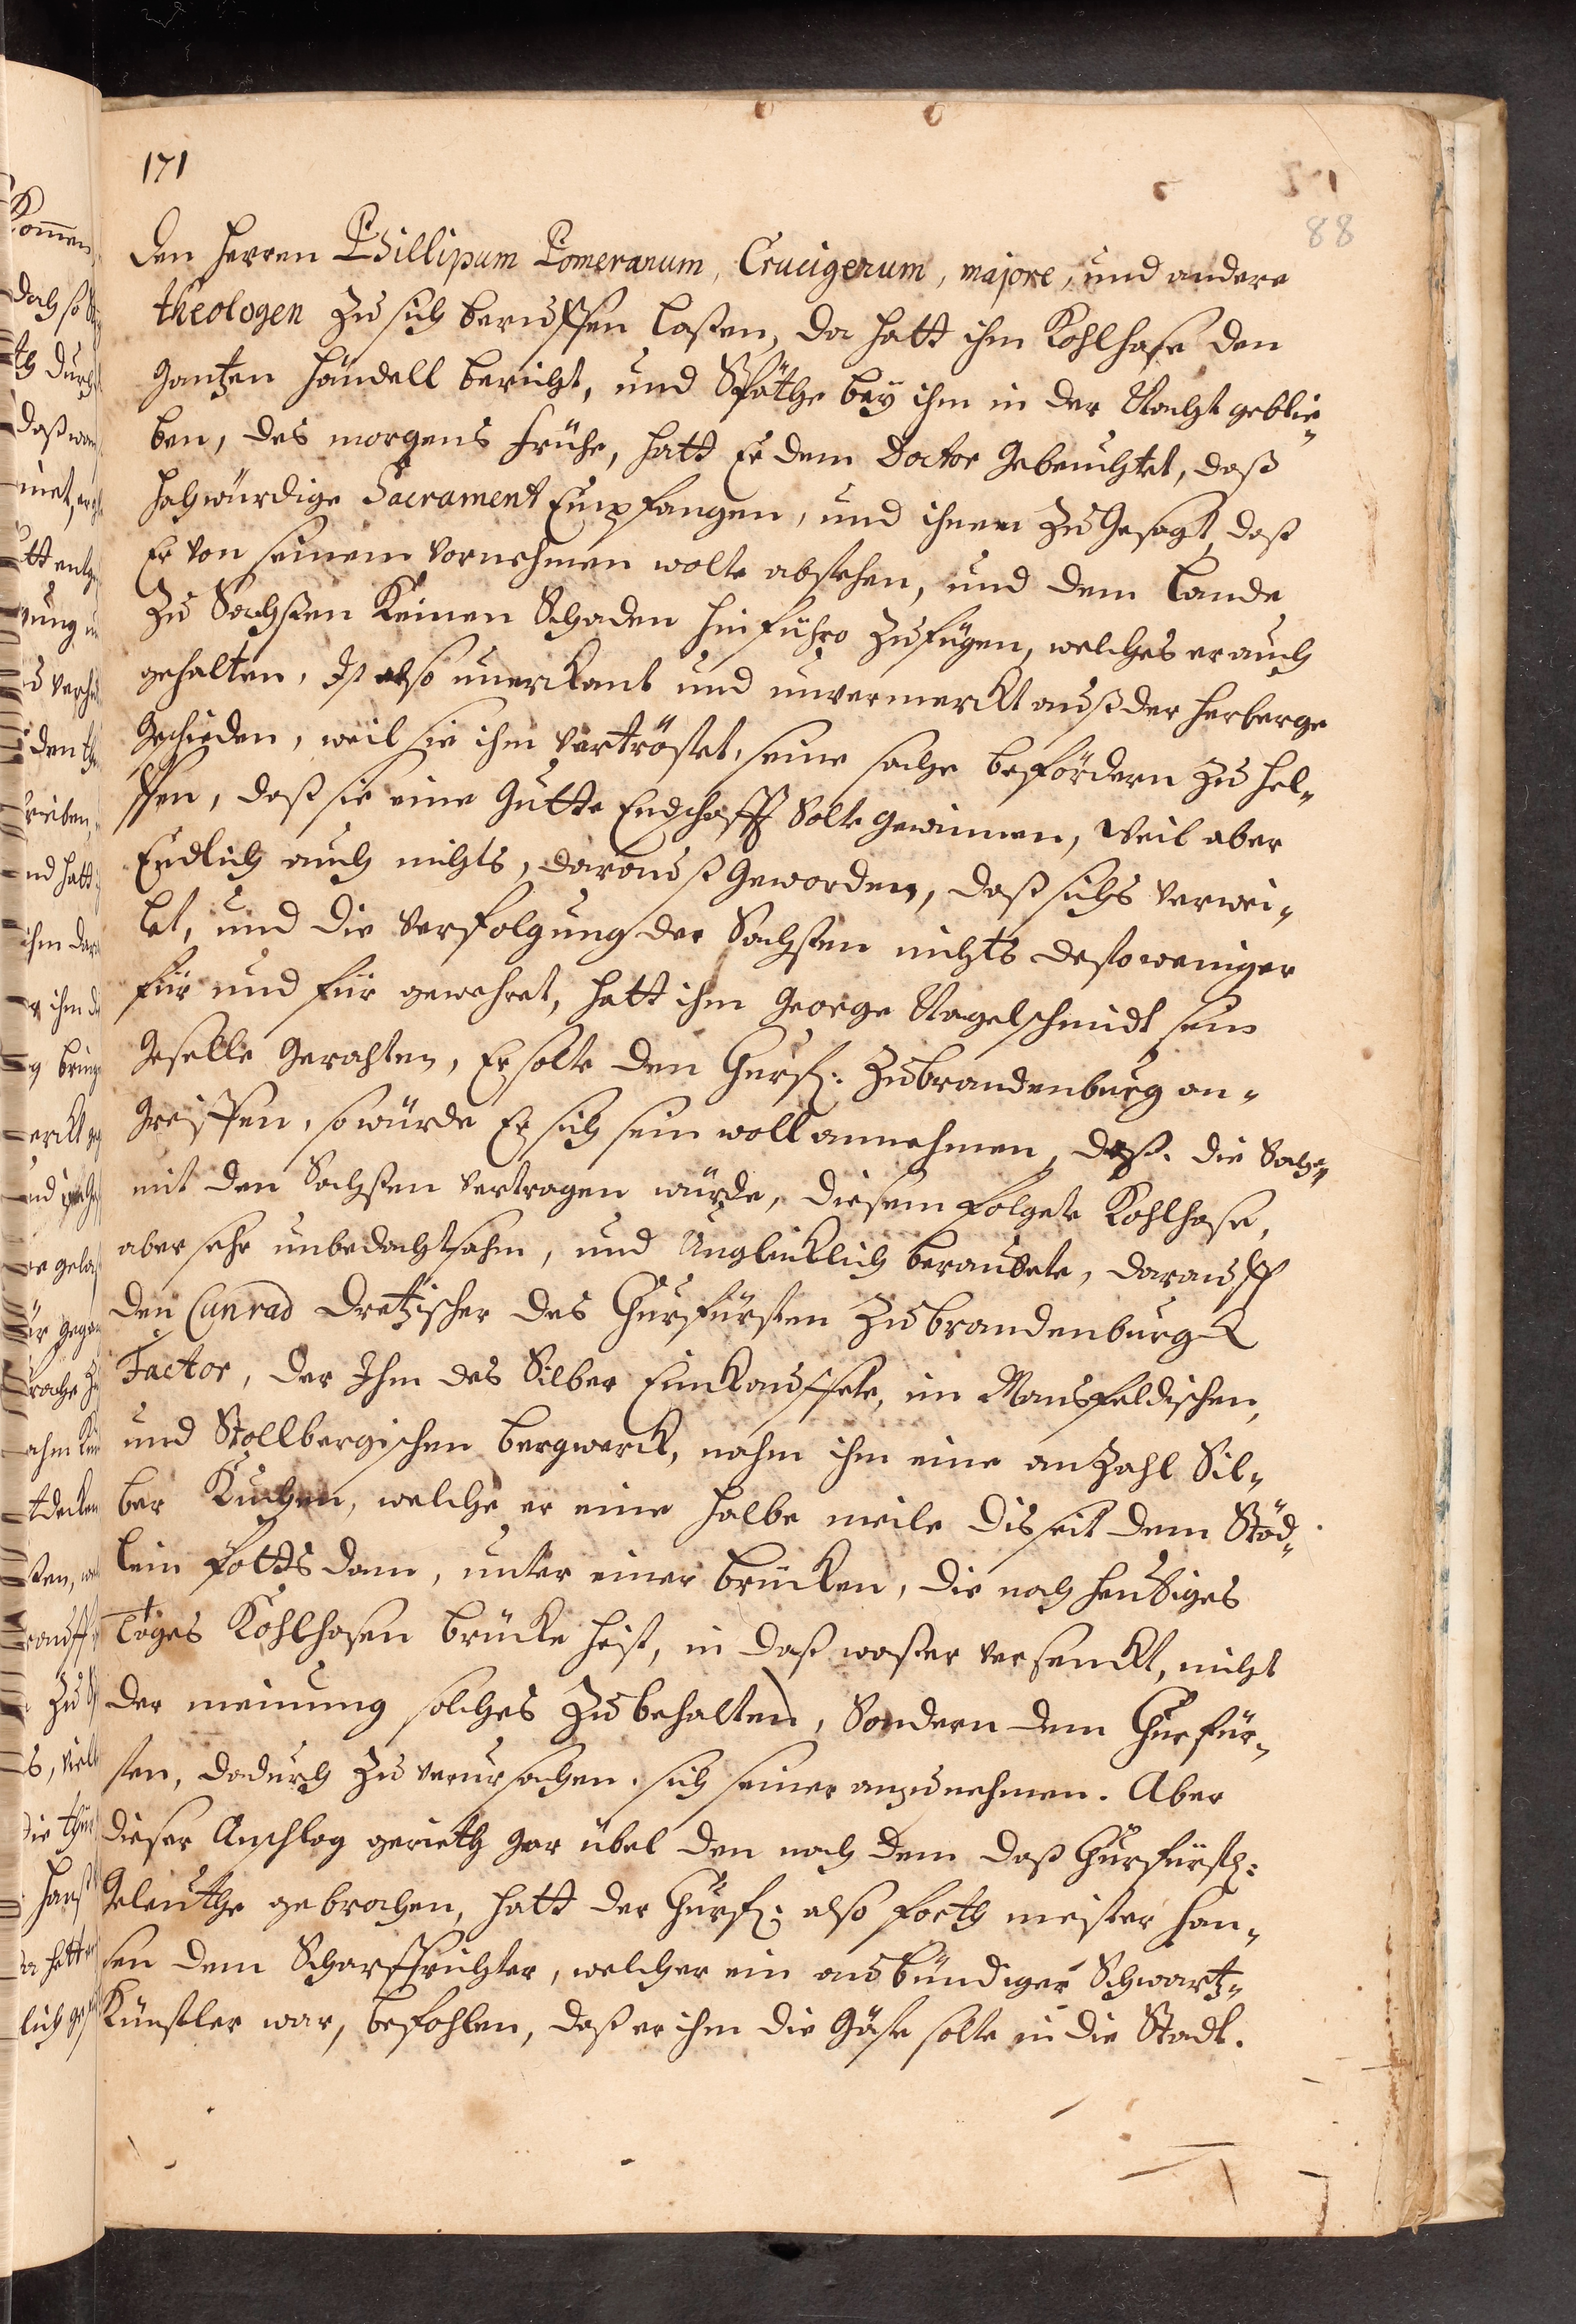 171
88
den herren Phillipum Pomeranum, Crucigerum, majore, und andere
theologen zu sich beruffen laßen, da hatt ihm Kohlhase den
gantzen händell bericht, und Späthe bey ihm in der Nacht geblie„
ben, des morgens frühe, hatt Er dem Doctor gebeuchtet, daß
hochwürdige Sacrament Empfangen, und ihnen zu gesagt, daß
Er von seinem vornehmen wolte abstehen, und dem Lande
zu Sachßen keinen Schaden hinführo zufügen, welches er auch
gehalten, Ist also unerkant und unvermerckt auß der herberge
geschieden, weil sie ihm vertröstet, seine sache befördern zu hel„
ffen, daß sie eine gutte Endschafft Solte gewinnen, weil aber
Endlich auch nichts, darauß geworden, daß sichs verwei„
let, und die verfolgung der Sachßen nichts desto weniger
für und für gewehret, hatt ihm George Nagelschmidt sein
geselle gerahten, Er solte den Churf: zu brandenburg an„
greiffen, so würde Er sich sein woll annehmen, daß die Sache„
mit den Sachßen vertragen würde, diesem folgete Kohlhase,
aber sehr unbedachtsahm, und Unglücklich beraubete, darauff
den Cunrad Dretzischer des Churfürsten zu brandenburgk
Factor, der Ihm das Silber Einkauffete, im Mansfeldischen,
und Stollbergischen bergwerck, nahm ihm eine anzahl Sil„
ber Kuchen, welche er eine halbe meile disseit dem Städ„
lein Pottsdam, unter einer brücken, die noch heutiges
Tages Kohlhasen brücke heist, in daß waßer versenckt, nicht
der meinung solches zu behalten, Sondern dem Churfür„
sten, dadurch zu verursachen. sich seiner anzunehmen. Aber
dieser Anschlag gerieth gar übel den nach dem daß Churfürstl:
geleuthe gebrochen, hatt der Churf: also forth meister han„
sen dem Scharffrichter, welcher ein ausbündiger Schwartz„
Künstler war, befohlen, daß er ihm die gäste solte in die Stadt.